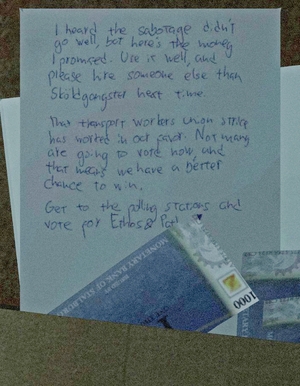 I heard the sabotage didn't
go well, but here's the money
I promised. Use is well, and
please hire someone else than
next time.
That transport workers union strike
has worked in our favor. Not many
are going to vote now, and
that means we have a better
chance to win.
Get to the polling stations and
vote for Ethos
MONETARY BANK OF STALBURG
1000